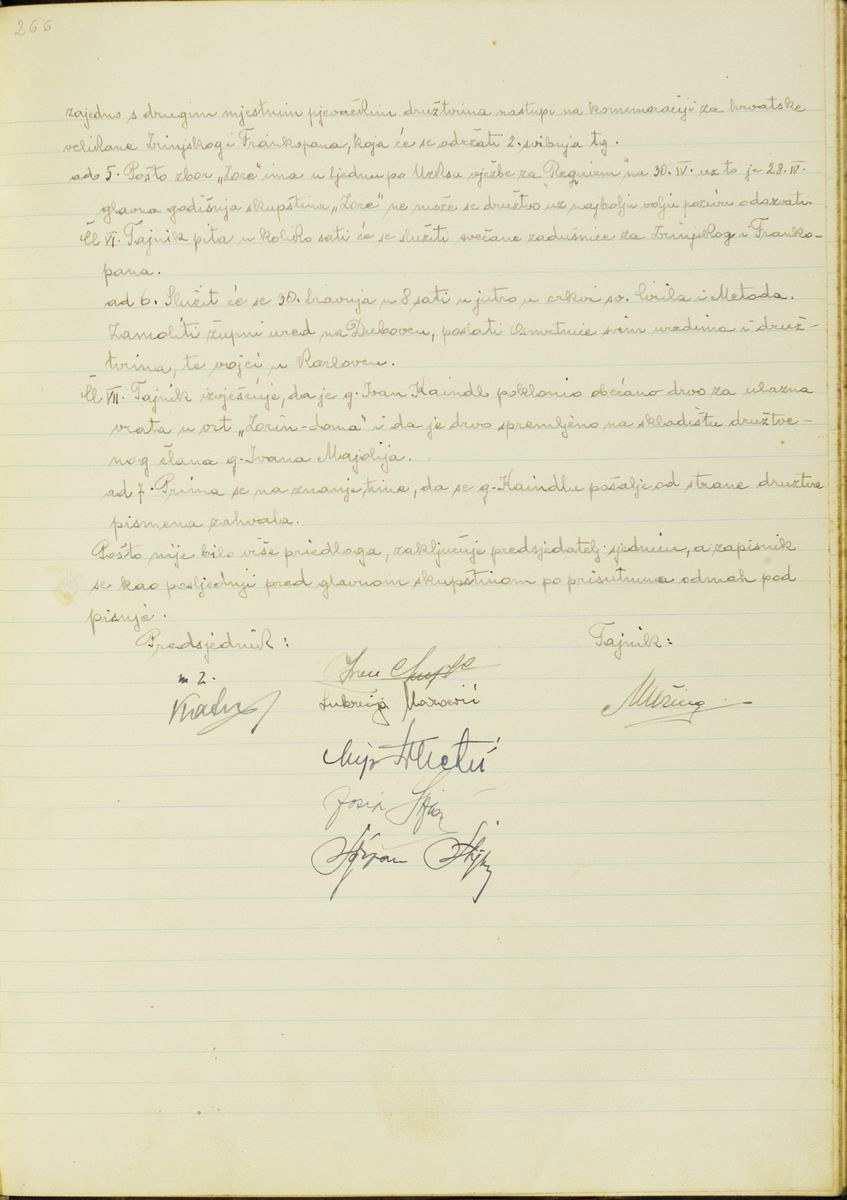 266
zajedno s drugim mjestnim pjevačkim družtvima nastupi na komemoraciji za hrvatske
velikane Zrinjskog i Frankopana, koja će se održati 2. svibnja tg.
ad 5. Pošto zbor „Zore" ima u tjednu po Uzkrsu vježbe za „Requiem" na 30. IV. uz to je 28. IV.
glavna godišnja skupština „Zore" ne može se družtvo uz najbolju volju pozivu odazvati.
Čl VI. Tajnik pita u koliko sati će se služiti svečane zadušnice za Zrinjskog i Franko-
pana.
ad 6. Služit će se 30. travnja u 8 sati u jutro u crkvi sv. Ćirila i Metoda.
Zamoliti župni ured na Dubovcu, poslati osmrtnice svim uredima i druž-
tvima, te vojsci u Karlovcu.
Čl VII. Tajnik izvješćuje, da je g. Ivan Kaindl poklonio obećano drvo za ulazna
vrata u vrt „Zorin-doma" i da je drvo spremljeno na skladištu družtve-
nog člana g. Ivana Majolija.
ad 7. Prima se na znanje time, da se g. Kaindlu pošalje od strane družtva
pismena zahvala.
Pošto nije bilo više priedloga, zaključuje predsjedatelj sjednicu, a zapisnik
se kao posljednji pred glavnom skupštinom po prisutnima odmah pod
pisuje.
Predsjednik: Tajnik:
m z.
Lukrecija
Josip
Stjepan